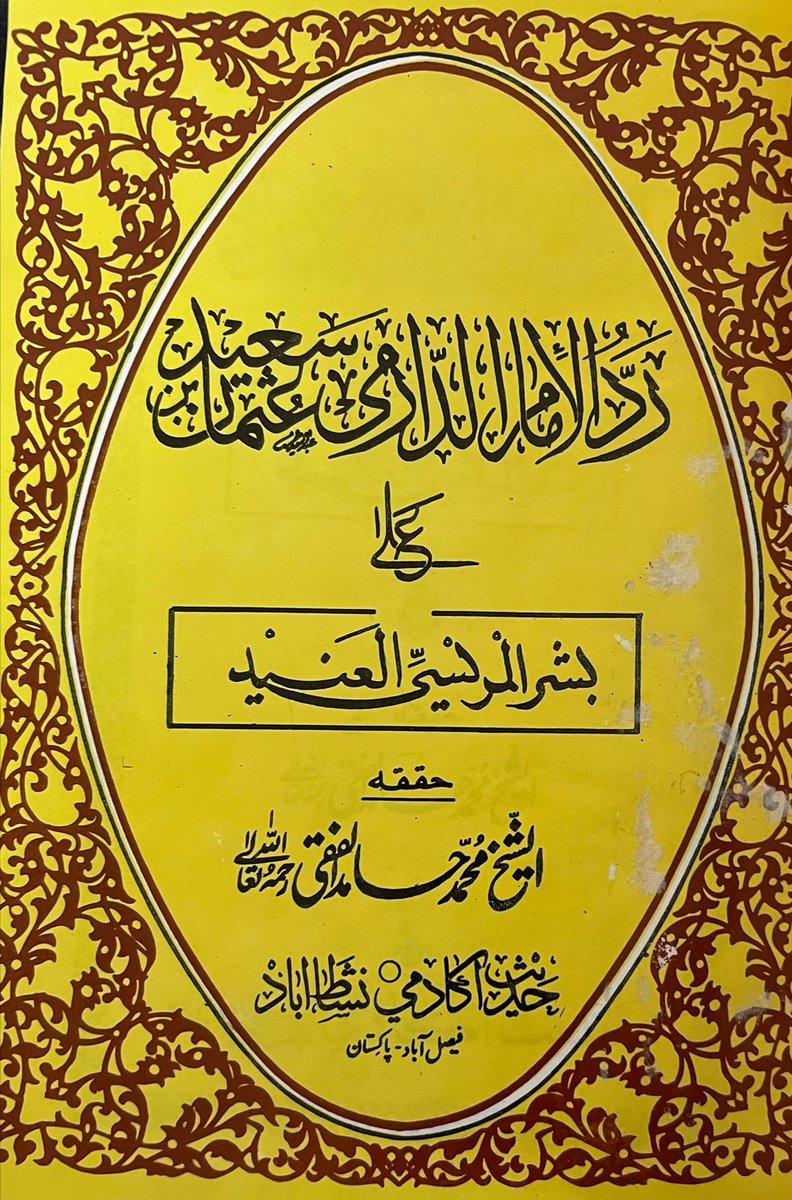 رَدُّ الإمام الدّارمي عُثمان بن سَعيد
عَلى
بشر المرْيسيّ العَنيْد
حققه
الشّيخ مُحمّد حَامد الفقي رحمهُ اللهُ تعَالىٰ
حَديث اكادمي ○ نشَاط اباد
فیصل آباد - پاکستان